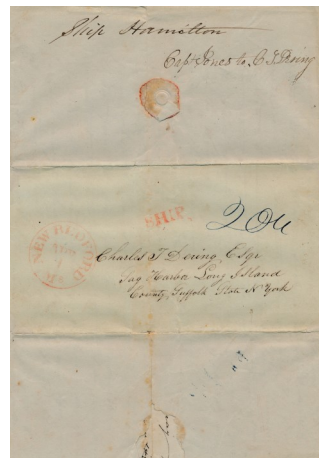 Ship Hamilton
Capt Jones to C T Dering
SHIP
NEW BEDFORD
MS
Charles T Dering Esqr
Sag Harbor Long Island
County Suffolk State N York